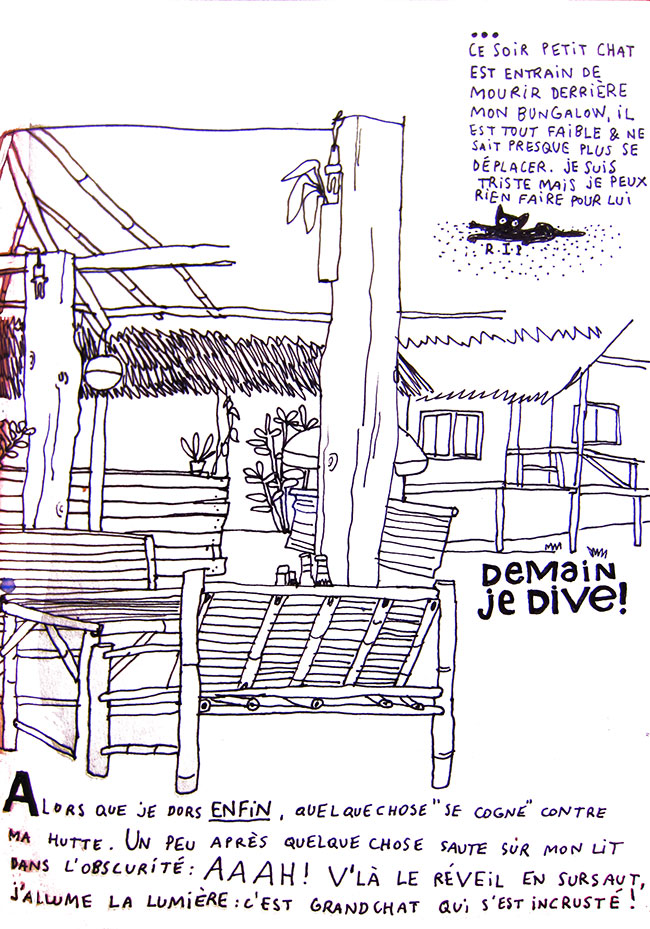 ...
CE SOIR PETIT CHAT
EST ENTRAIN DE
MOURIR DERRIÈRE
MON BUNGALOW, IL
EST TOUT FAIBLE & NE
SAIT PRESQUE PLUS SE
DÉPLACER. JE SUIS
TRISTE MAIS JE PEUX
RIEN FAIRE POUR LUI
R.I.P
DEMAIN
JE DIVE!
ALORS QUE JE DORS ENFIN, QUELQUECHOSE "SE COGNE" CONTRE
MA HUTTE. UN PEU APRÈS QUELQUE CHOSE SAUTE SUR MON LIT
DANS L'OBSCURITÉ: AAAH! V'LÀ LE RÉVEIL EN SURSAUT,
J'ALLUME LA LUMIÈRE: C'EST GRANDCHAT QUI S'EST INCRUSTÉ!